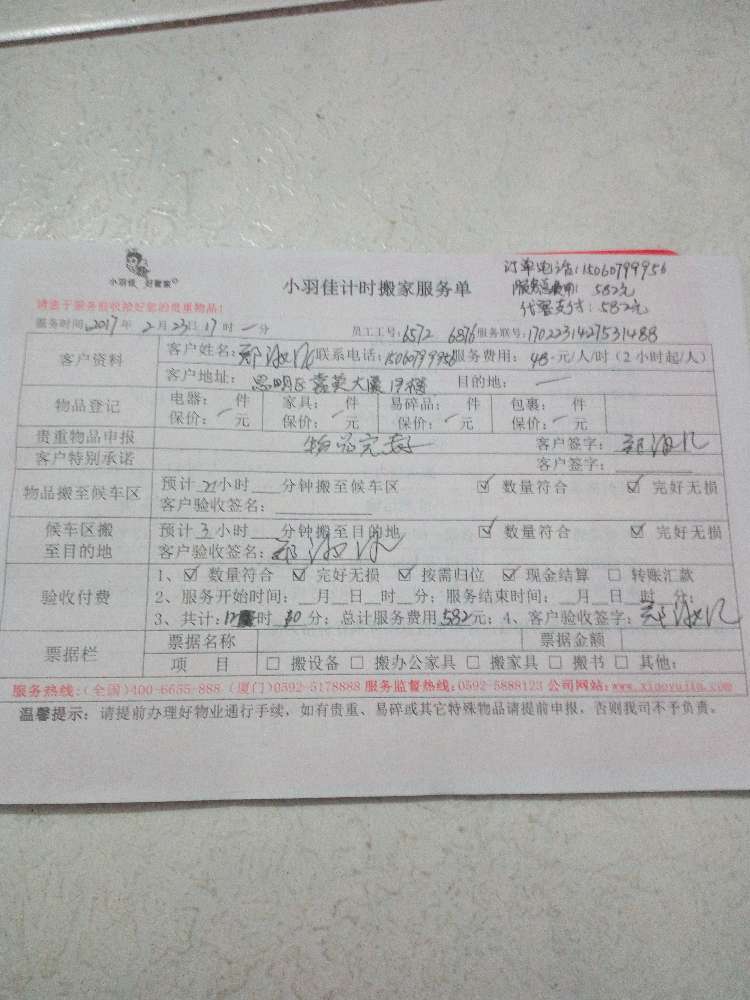 小羽佳 好管家
小羽佳计时搬家服务单
订单电话:15060799956
服务总费用:582元
代客支付:582元
请您于服务前收检好您的贵重物品!
服务时间:2017年2月23日17时一分 员工工号:6572 6876 服务联号:1702231427531488
客户资料
客户姓名:郑 联系电话:15060799956 服务费用:48元/人/时(2小时起/人)
客户地址:思明区嘉英大厦 目的地:一
物品登记
电器: 件 家具: 件 易碎品: 件 包裹: 件
保价:一元 保价:一元 保价:一元 保价:一元
贵重物品申报 物品完好 客户签字:郑
客户特别承诺 客户签字:
物品搬至候车区
预计 小时 分钟搬至候车区 ☑ 数量符合 ☑ 完好无损
客户验收签名:
候车区搬至目的地
预计3小时 分钟搬至目的地 ☑ 数量符合 ☑ 完好无损
客户验收签名:郑
验收付费
1、☑ 数量符合 ☑ 完好无损 ☑ 按需归位 ☑ 现金结算 □ 转账汇款
2、服务开始时间: 月 日 时 分;服务结束时间: 月 日 时 分;
3、共计:12时 30分;总计服务费用582元;4、客户验收签字:郑
票据栏
票据名称 票据金额
项 目 □ 搬设备 □ 搬办公家具 □ 搬家具 □ 搬书 □ 其他:
服务热线:(全国)400-6655-888 (厦门)0592-5178888 服务监督热线:0592-5888123 公司网站:www.xiaoyujia.com
温馨提示:请提前办理好物业通行手续,如有贵重、易碎或其它特殊物品请提前申报,否则我司不予负责。